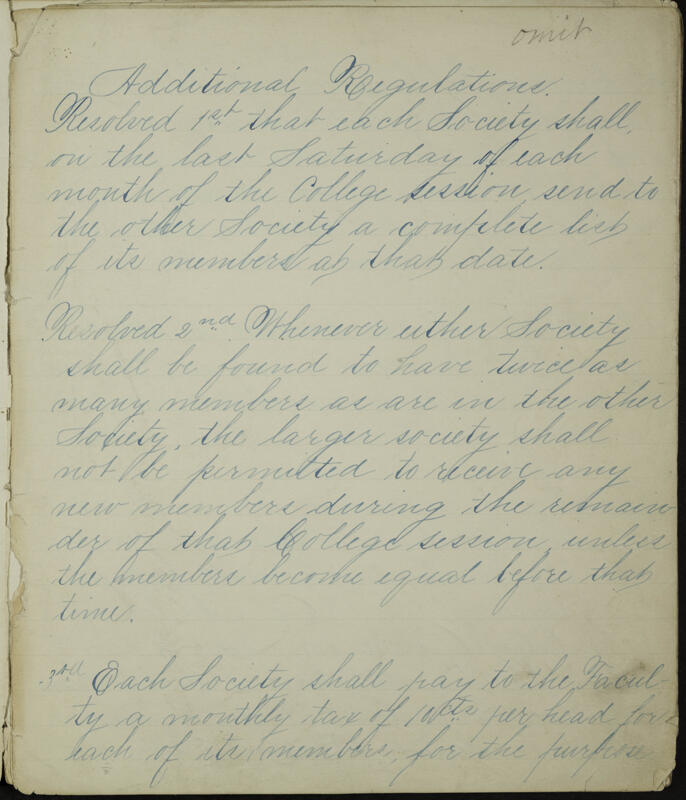 omit
Additional Regulations.
Resolved 1st that each Society shall,
on the last Saturday of each
month of the College session, send to
the other Society a complete list
of its members at that date.
Resolved 2nd. Whenever either Society
shall be found to have twice as
many members as are in the other
Society, the larger society shall
not be permitted to receive any
new members during the remain-
der of that College session, unless
the members become equal before that
time.
3rd Each Society shall pay to the Facul-
ty a monthly tax of 10cts per head for
each of its members, for the purpose